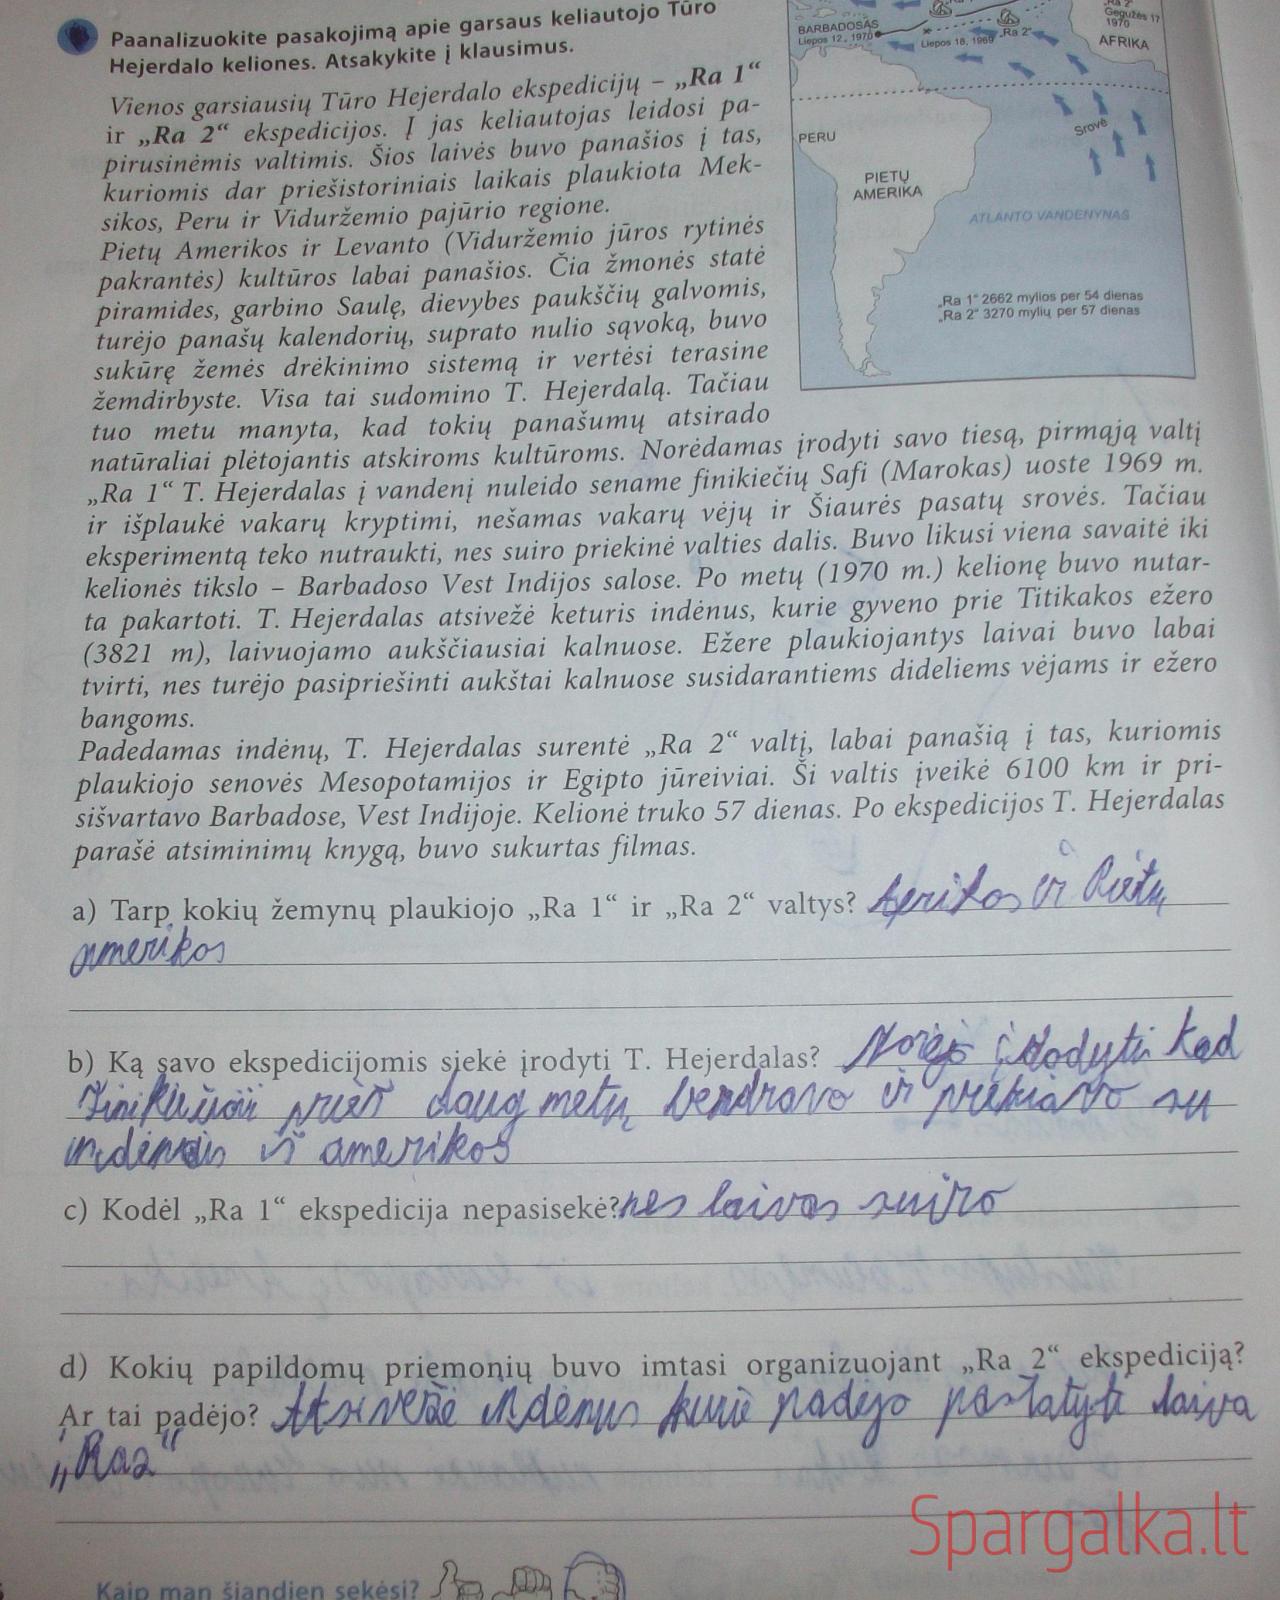 Paanalizuokite pasakojimą apie garsaus keliautojo Tūro
Hejerdalo keliones. Atsakykite į klausimus.
Vienos garsiausių Tūro Hejerdalo ekspedicijų – „Ra 1“
ir „Ra 2“ ekspedicijos. Į jas keliautojas leidosi pa-
pirusinėmis valtimis. Šios laivės buvo panašios į tas,
kuriomis dar priešistoriniais laikais plaukiota Mek-
sikos, Peru ir Viduržemio pajūrio regione.
Pietų Amerikos ir Levanto (Viduržemio jūros rytinės
pakrantės) kultūros labai panašios. Čia žmonės statė
piramides, garbino Saulę, dievybes paukščių galvomis,
turėjo panašų kalendorių, suprato nulio sąvoką, buvo
sukūrę žemės drėkinimo sistemą ir vertėsi terasine
žemdirbyste. Visa tai sudomino T. Hejerdalą. Tačiau
tuo metu manyta, kad tokių panašumų atsirado
natūraliai plėtojantis atskiroms kultūroms. Norėdamas įrodyti savo tiesą, pirmąją valtį
„Ra 1“ T. Hejerdalas į vandenį nuleido sename finikiečių Safi (Marokas) uoste 1969 m.
ir išplaukė vakarų kryptimi, nešamas vakarų vėjų ir Šiaurės pasatų srovės. Tačiau
eksperimentą teko nutraukti, nes suiro priekinė valties dalis. Buvo likusi viena savaitė iki
kelionės tikslo – Barbadoso Vest Indijos salose. Po metų (1970 m.) kelionę buvo nutar-
ta pakartoti. T. Hejerdalas atsivežė keturis indėnus, kurie gyveno prie Titikakos ežero
(3821 m), laivuojamo aukščiausiai kalnuose. Ežere plaukiojantys laivai buvo labai
tvirti, nes turėjo pasipriešinti aukštai kalnuose susidarantiems dideliems vėjams ir ežero
bangoms.
Padedamas indėnų, T. Hejerdalas surentė „Ra 2“ valtį, labai panašią į tas, kuriomis
plaukiojo senovės Mesopotamijos ir Egipto jūreiviai. Ši valtis įveikė 6100 km ir pri-
sišvartavo Barbadose, Vest Indijoje. Kelionė truko 57 dienas. Po ekspedicijos T. Hejerdalas
parašė atsiminimų knygą, buvo sukurtas filmas.
BARBADOSAS
Liepos 12, 1970
Liepos 18, 1969
„Ra 2“
„Ra 2“
Gegužės 17
1970
AFRIKA
PERU
Srovė
PIETŲ
AMERIKA
ATLANTO VANDENYNAS
„Ra 1“ 2662 mylios per 54 dienas
„Ra 2“ 3270 mylių per 57 dienas
a) Tarp kokių žemynų plaukiojo „Ra 1“ ir „Ra 2“ valtys? Afrikos ir Pietų
amerikos
b) Ką savo ekspedicijomis siekė įrodyti T. Hejerdalas? Norėjo įdodyti kad
Finikiečiai prieš daug metų bendravo ir prekiavo su
indėnais iš amerikos
c) Kodėl „Ra 1“ ekspedicija nepasisekė? nes laivas suiro
d) Kokių papildomų priemonių buvo imtasi organizuojant „Ra 2“ ekspediciją?
Ar tai padėjo? Atsivežė indėnus kurie padėjo pastatyti laiva
„Ra2“
Spargalka.lt
Kaip man šiandien sekėsi?